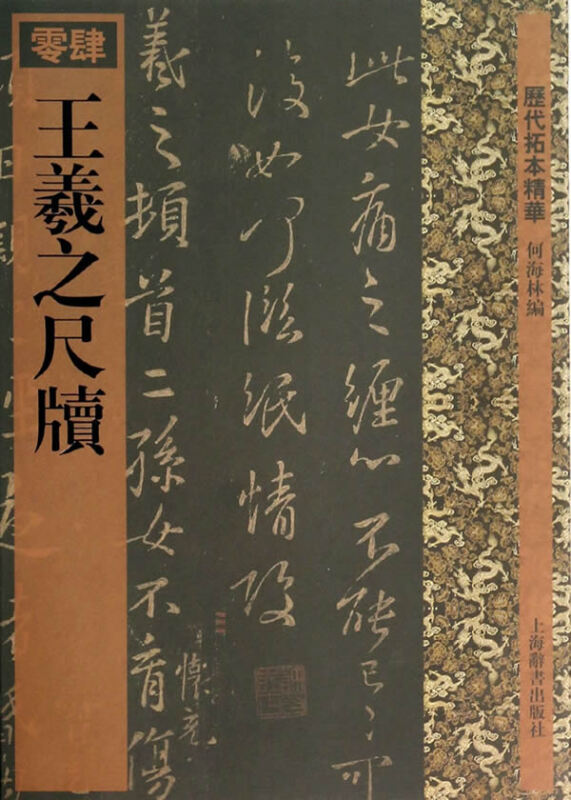 零肆
王羲之尺牘
歷代拓本精華
何海林編
上海辭書出版社
此女痛之纏心不能已已可
復如何臨紙情酸
羲之頓首二孫女不育傷
懷充